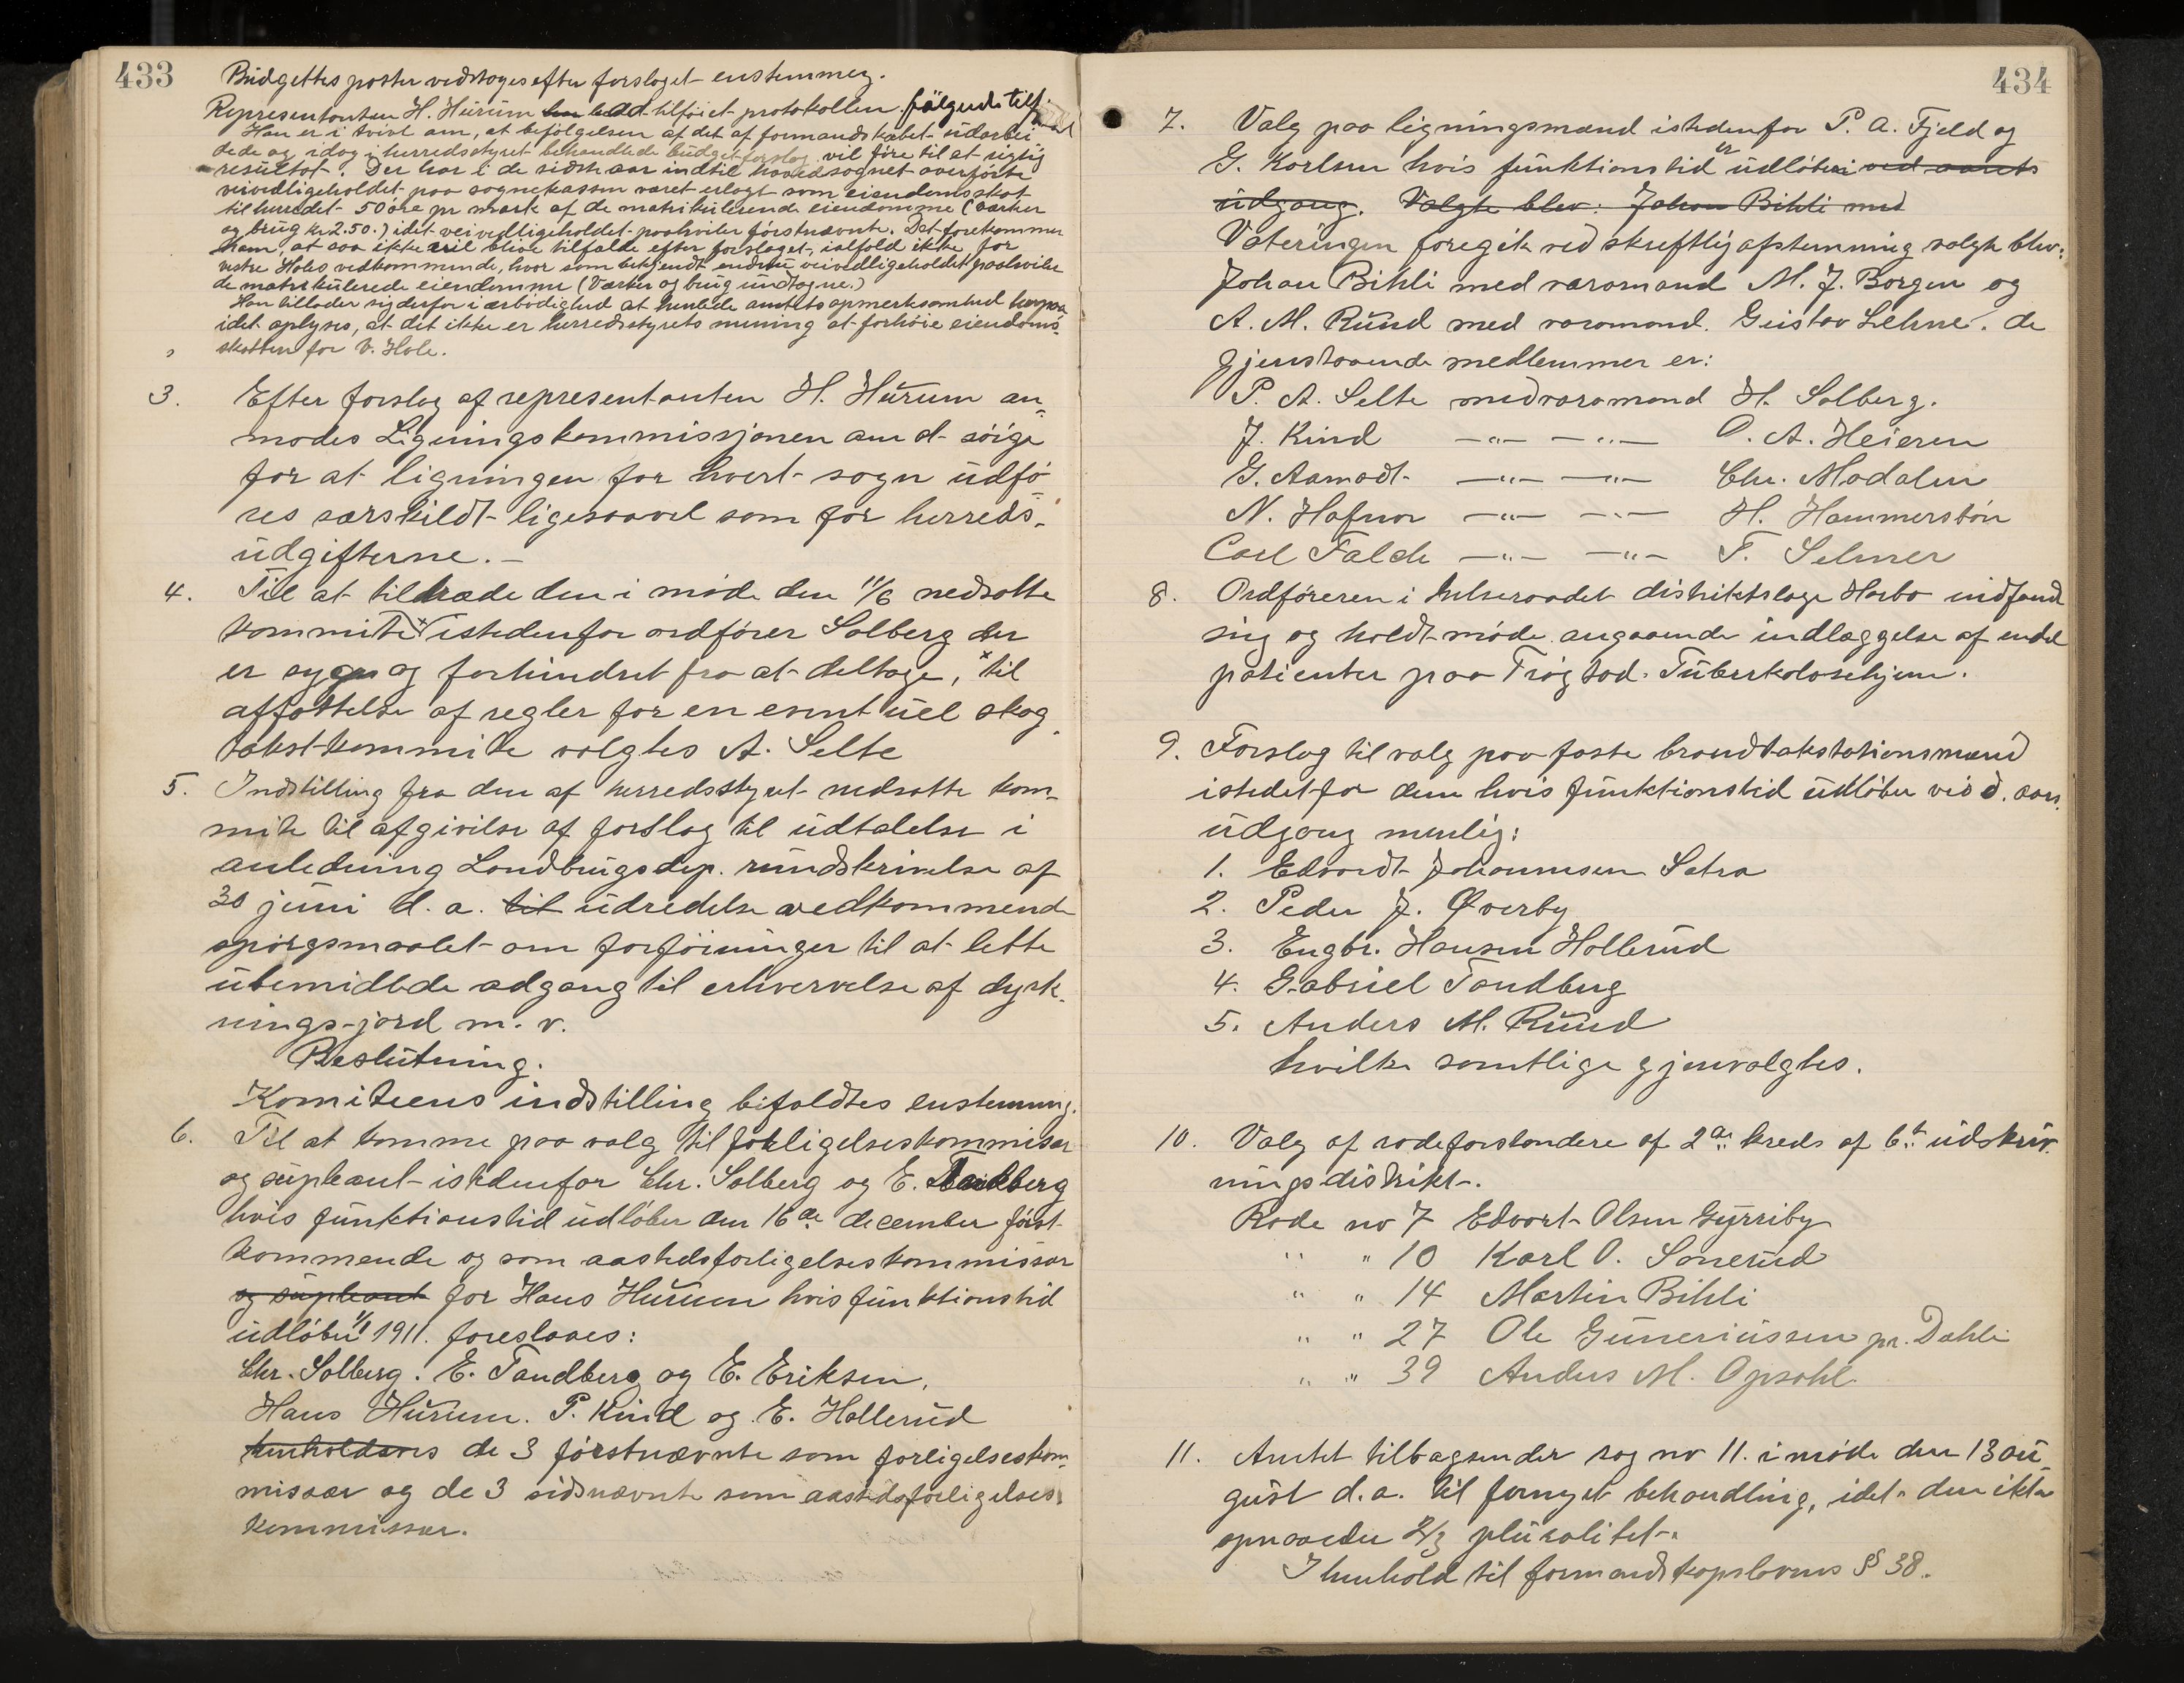 433
Budgettes poster vedtoges efter forslaget enstemmig.
Representanten H. Hurum har bedd tilföiet protokollen følgende
Han er i tvivl om, at befölgelsen af det af formandskabet udarbei
dede og idag i herredsstyret behandlede budgetforslag vil före til et rigtig
resultat. Der har i de sidste aar indtil hovedsognet overförte
veivedligeholdet paa sognekassen været erlagt som eiendomsskat
til herredet 50 öre pr mark af de matrikulerende eiendomme (værker
og brug kr 2.50.) idet veivedligeholdet paahviler förstnævnte. Det forekommer
ham, at saa ikke vil blive tilfælde efter forslaget, ialfald ikke for
vestre Holes vedkommende, hvor som bekjendt endnu veivedligeholdet paahviler
de matrikulerede eiendomme (Værker og brug undtagne.)
Han tillader sig derfor i ærbödighed at henlede amtets opmerksomhed herpaa
idet oplyses, at det ikke er herredsstyrets mening at forhöie eiendoms-
skatten for V. Hole.
3. Efter forslag af representanten H. Hurum an-
modes Ligningskommissjonen om at sörge
for at ligningen for hvert sogn udfö-
res særskildt ligesaavel som for herreds-
udgifterne. -
4. Til at tiltræde den i möde den 11/6 nedsatte
kommite x istedenfor ordförer Solberg der
er syg og forhindret fra at deltage, x til
affattelse af regler for en eventuel skog-
takstkommite valgtes A. Selte
5. Indstilling fra den af herredsstyret nedsatte kom-
mite til afgivelse af forslag til udtalelse i
anledning Landbrugsdep. rundskrivelse af
30 juni d. a. til udredelse vedkommende
spörgsmaalet om forföininger til at lette
ubemidlede adgang til erhvervelse af dyrk-
nings-jord m. v.
Beslutning.
Komiteens indstilling bifaldtes enstemmig.
6. Til at komme paa valg til forligelseskommisær
og supleant istedenfor Chr. Solberg og E. Tandberg
hvis funktionstid udlöber den 16de december först-
kommende og som aastedsforligelseskommissær
og supleant for Hans Hurum hvis funktionstid
udlöber 1/1 1911. foreslaaes:
Chr. Solberg. E. Tandberg og E. Eriksen.
Hans Hurum. P. Kind og E. Hollerud
henholdsvis de 3 förstnævnte som forligelseskom-
missær og de 3 sidsnævnte som aastedsforligelses-
kommissær.
434
7. Valg paa ligningsmænd istedenfor P. A. Fjeld og
G. Karlsen hvis funktionstid er udlöben ved aarets
udgang. Valgte blev: Johan Bihli med
Voteringen foregik ved skreftlig afstemning valgte blev:
Johan Bihli med varamand M. J. Borgen og
A. M. Ruud med varamand. Gustav Lehne. de
gjenstaaende medlemmer er:
P. A. Selte med varamand H. Solberg.
J. Kind —"— —"— O. A. Heieren
G. Aamodt —"— —"— Chr. Modalen
N. Hafnor —"— —"— H. Hammersbön
Carl Falch —"— —"— F. Selmer
8. Ordföreren i helseraadet distriktslæge Harbo indfandt
sig og holdt möde angaaende indlæggelse af endel
patienter paa Frögstad Tuberkolosehjem.
9. Forslag til valg paa faste brandtakstationsmænd
istedetfor dem hvis funktionstid udlöber ved d. aars
udgang nemlig:
1. Edvardt Johannesen Sætra
2. Peder J. Øverby
3. Engbr. Hansen Hollerud
4. Gabriel Tandberg
5. Anders M. Ruud
hvilke samtlige gjenvalgtes.
10. Valg af rodeforstandere af 2den kreds af 6te udskriv-
ningsdistrikt.
Rode no 7 Edvart Olsen Gyrriby
" " 10 Karl O. Sönerud
" " 14 Martin Bihli
" " 27 Ole Guneriussen pr. Dahli
" " 39 Anders M. Opsahl
11. Amtet tilbagsender sag no 11. i möde den 13 au-
gust d. a. til fornyet behandling, idet den ikke
opnaaede 2/3 pluralitet.
I henhold til formandskapslovens § 38.